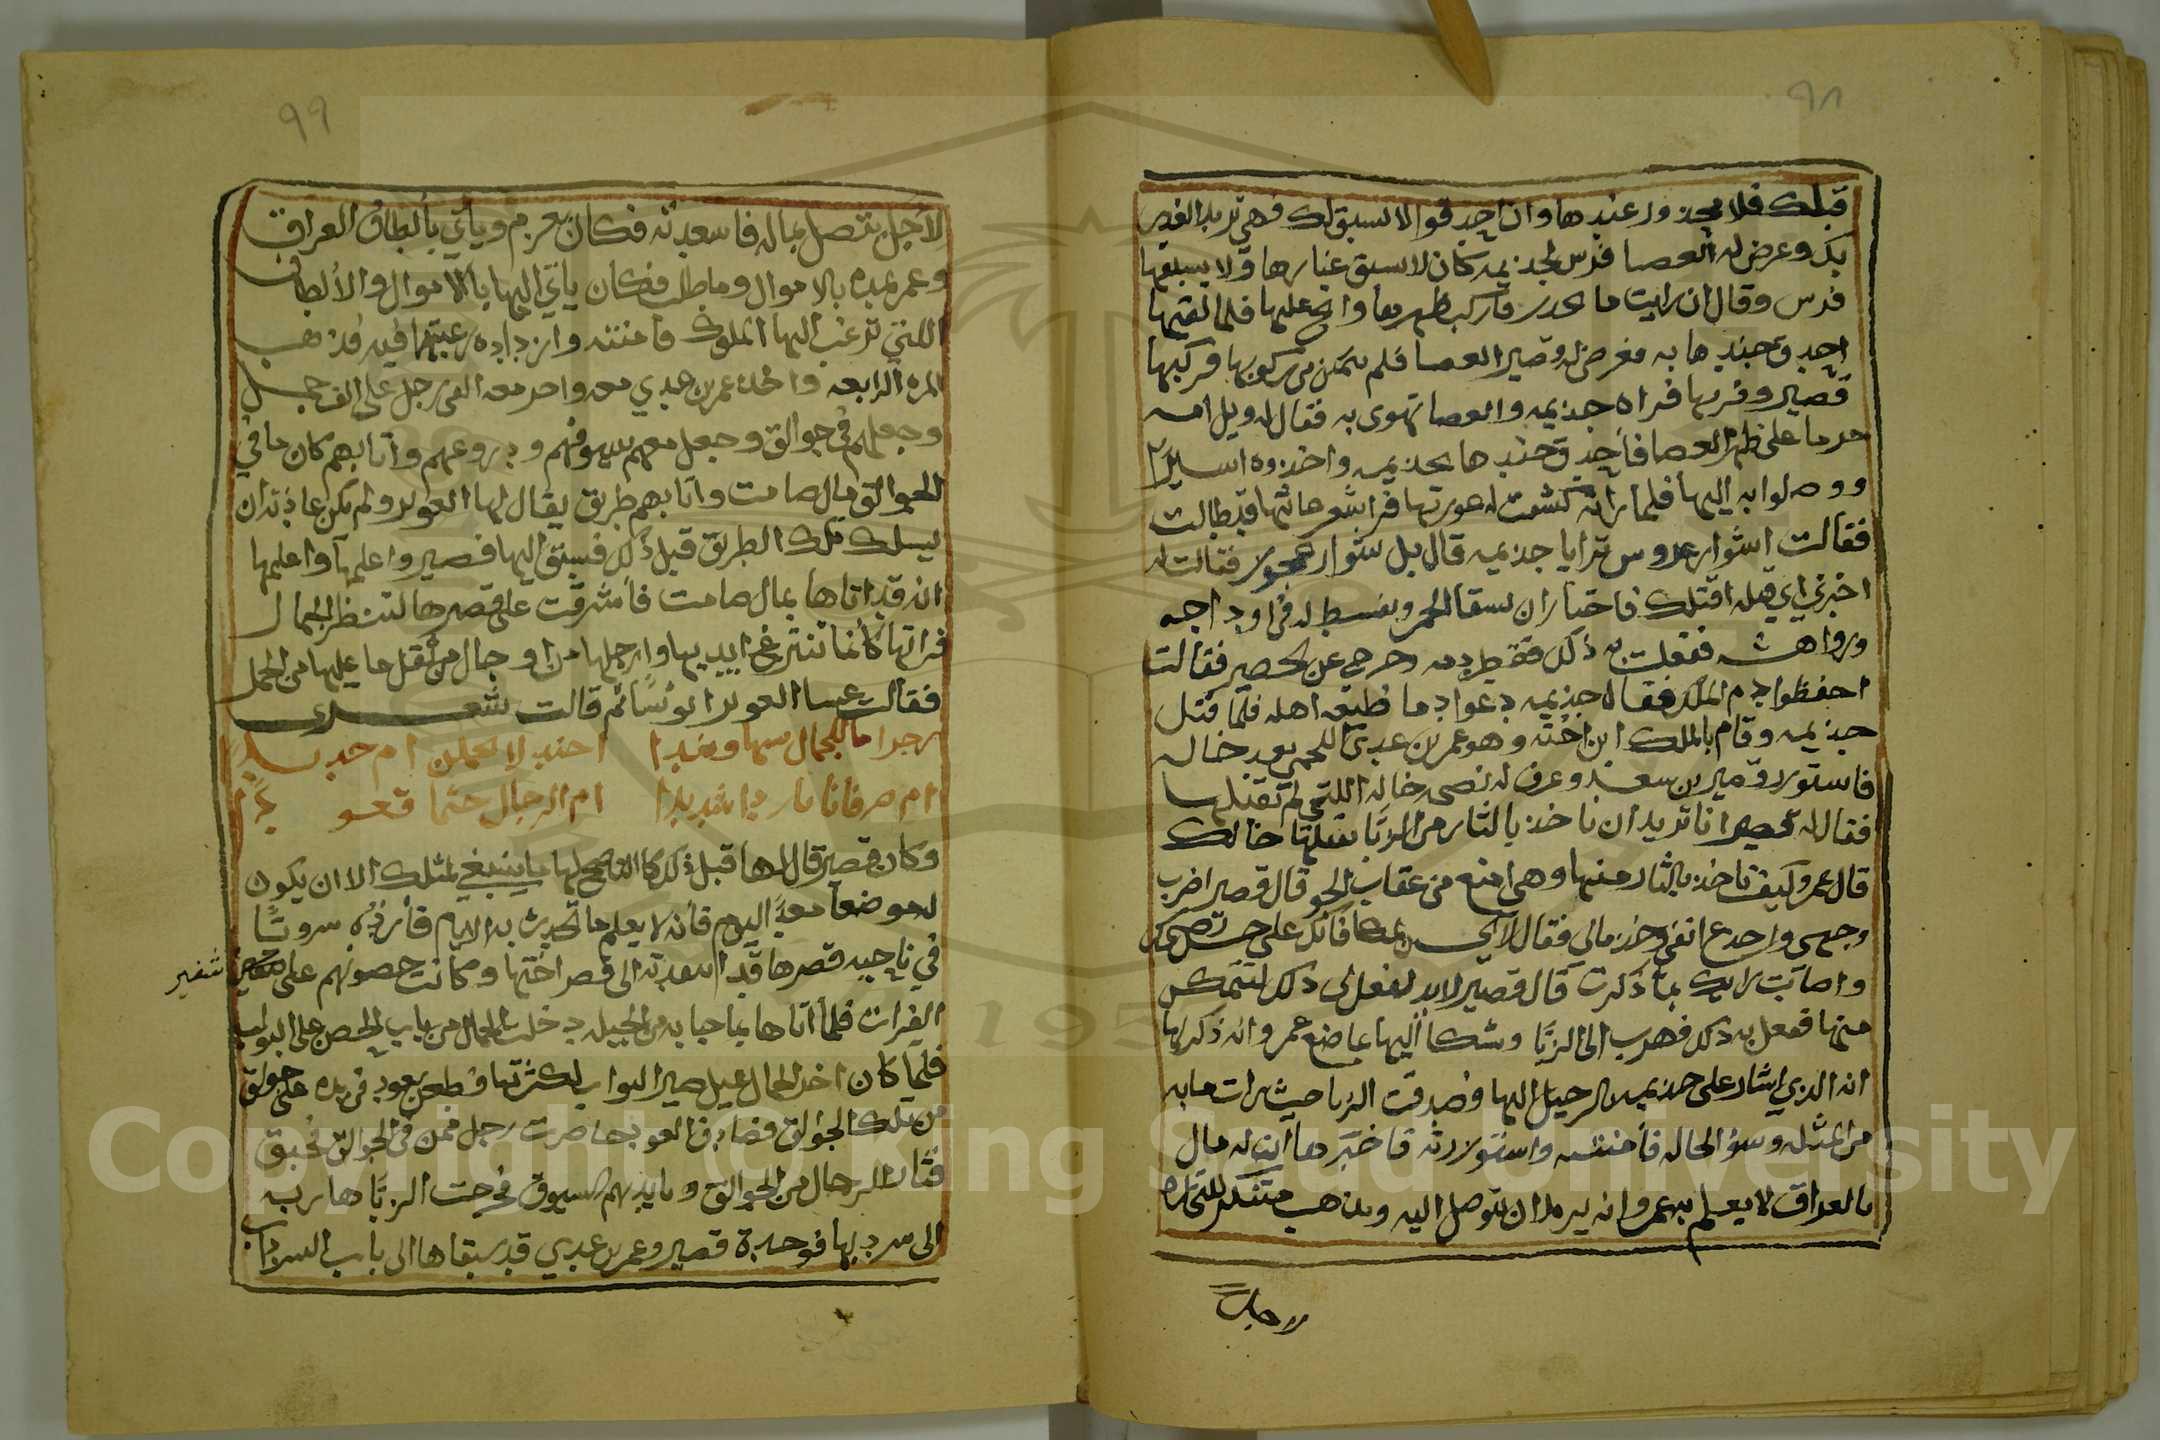 ٩٨
قبلك فلا محذور عندها وان احدقوا لا لسبق لك فهي تريد الغدر
بك وعرض له العصا فرس لجذيمه كان لا يسبق غبارها ولا يسبقها
فرس وقال ان رايت ما تحذر فاركب ظهرها وانج عليها فلما لقيها
احدق جندها به فعرض له قصير العصا فلم يتمكن من ركوبها فركبها
قصير وفر بها فراه جذيمه والعصا تهوى به فقال له ويل امه
حزما على ظهر العصا فأحدق جندها بجذيمه واخذوه اسيرا
ووصلوا به اليها فلما راته كشفت له عورتها فرا شعر عانتها قد طالت
فقالت اشوار عروس ترا يا جذيمه قال بل شوار فقالت له
اخبرني اي قتله اقتلك فاختار ان يسقا الخمر ويفسط له في اوداجه
ورواهشه ففعلت به ذلك فقطر دمه وخرج عن الحصير فقالت
احفظوا دم الملك فقال جذيمه دعوا دما ضيعه اهله فلما قتل
جذيمه وقام بالملك ابن اخته وهو عمر بن عدي اللخمي بعد خاله
فاستوزر قصير بن سعد وعرف له نصحه خاله اللتي لم تقبلها
فقال له قصير انا تريد ان ناخذ بالثار من الزبا بقتلها خالك
قال عمر وكيف ناخذ بالثار منها وهي امنع من عقاب الجو قال قصير اضرب
وجهى واجدع انفى وخذ مالي فقال لا فانك على
واصابت رايك بما ذكرت قال قصير لا بد تفعل لى ذلك لتتمكن
منها ففعل به ذلك فهرب الى الزبا وشكا اليها ما صنع عمر وانه ذكر لها
انه الذي اشار على جذيمه بالرحيل اليها فصدقت الزبا حيث رات ما به
من المثله وسؤ الحاله فأمنته واستوزرته فاخبرها ان له مال
بالعراق لا يعلم به عمر وانه يريد ان يتوصل اليه ويذهب متنكر للتجاره
لاجل
٩٩
لاجل يتصل بماله فاسعدته فكان يعزم ويأتي بألطاف العراق
وعمر يمده بالاموال وما طلب فكان ياتي اليها بالاموال والألطاف
اللتي ترغب اليها الملوك فأمنته وازداده رغبتها فيه فذهب
المره الرابعه واخذ عمر بن عدي معه واخذ معه الفى رجل على الف جمل
وجعلهم في جوالق وجعل معهم سيوفهم ودروعهم وأتا بهم كان ما في
الجوالق مال صامت وأتا بهم طريق يقال لها الغوير ولم يكن عادته ان
يسلك تلك الطريق قبل ذلك فسبق اليها قصير واعلمها واعلمها
انه قد اتاها بمال صامت فأشرقت على قصرها لتنظر الجمال
فراتها كأنما تنتزغ ايديها وارجلها من اوجال من ثقل ما عليها من الحمل
فقالت عسا الغوير ابوسًا ثم قالت شعـــرى
ما للجمال سيها وئيدا اجندلا يحملن ام حديدا
ام صرفانا باردا شديدا ام الرجال جثما قعودا
وكان قصير قال لها قبل ذلك كا الناصح لها ما ينبغي لمثلك الا ان يكون
له موضعا معدا اليوم فأنه لا يعلم ما تحدث به الايام فأرته سروبًا
في ناحيه قصرها قد انفذته الى قصر اختها وكانت حصونهم على شفير
الفرات فلما أتاها بما جا به من الحيله دخلت الجمال من باب الحصن على البواب
فلما كان اخر الجمال عيل صبر البواب لكثرتها فطعن بعود فى يده على جوالق
من تلك الجوالق فصادف العود خاصرت رجل ممن في الجوالق فحبق
فثار الرجال من الجوالق وبايديهم السيوف فخرجت الزبا هاربه
الى سردبها فوجدة قصير وعمر بن عدي قد سبقاها الى باب السرداب
شفير
Copyright © King Saud University
195